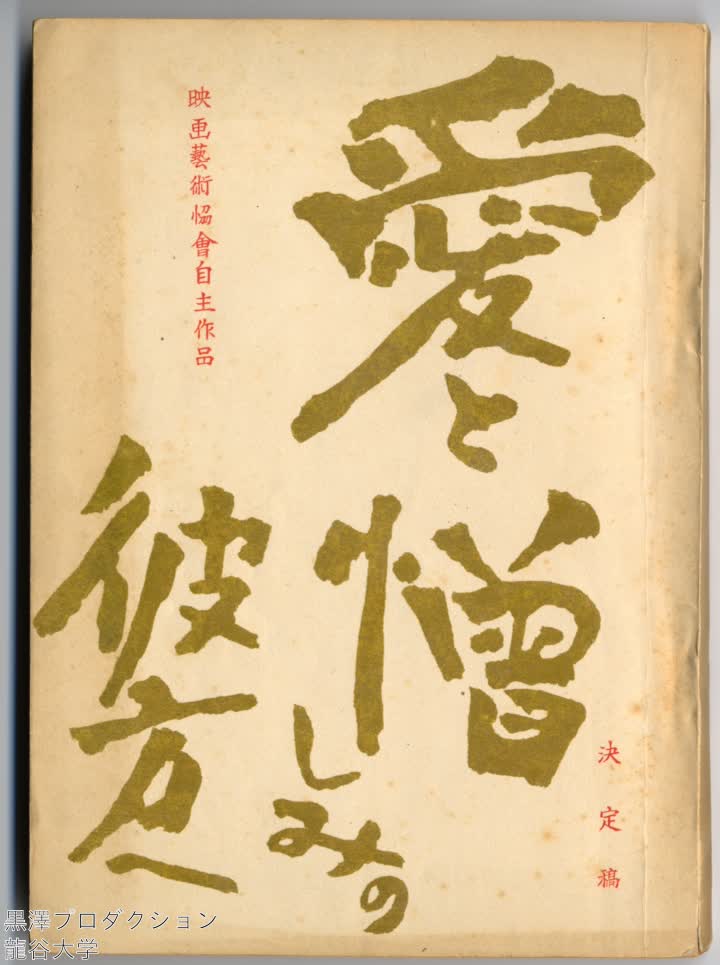 決定稿
愛と
憎しみの
彼方へ
映画藝術協會自主作品
黒澤プロダクション
龍谷大学